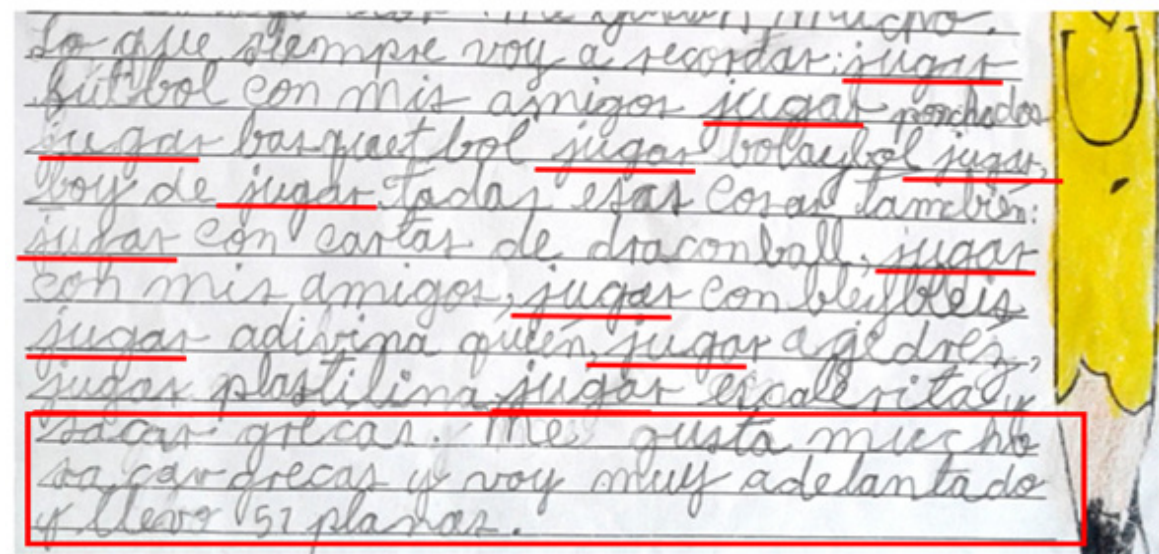 Me gustan mucho.
Lo que siempre voy a recordar: jugar
futbol con mis amigos jugar ponchados
jugar basquetbol jugar bolaybol jugar,
boy de jugar todas esas cosas también:
jugar con cartas de draconball, jugar
con mis amigos, jugar con bleybleis
jugar adivina quién, jugar agedrez,
jugar plastilina, jugar escalerita y
sacar grecas. Me gusta mucho
sacar grecas y voy muy adelantado
y llevo 51 planas.